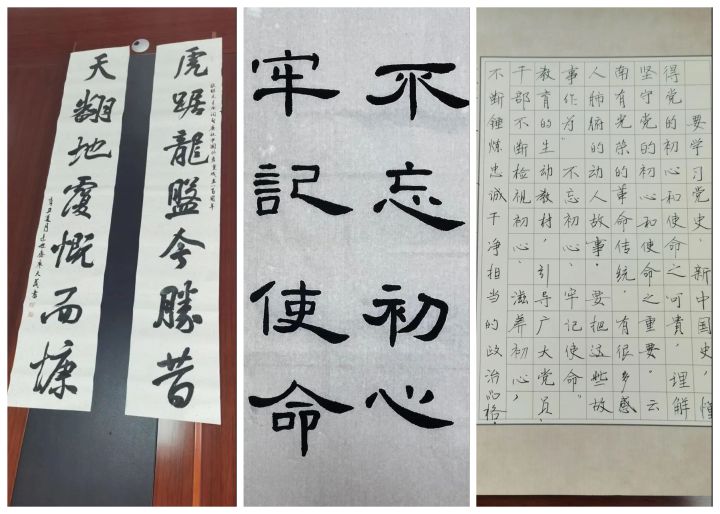 虎踞龍盤今勝昔
天翻地覆慨而慷
不忘初心
牢記使命
要学习党史、新中国史，懂
得党的初心和使命之可貴，理解
坚守党的初心和使命之重要。云
南有光荣的革命传统，有很多感
人肺腑的动人故事。要把这些故
事作为“不忘初心、牢记使命”
教育的生动教材，引导广大党员
干部不断检视初心、滋养初心，
不断锤炼忠诚干净担当的政治品格。